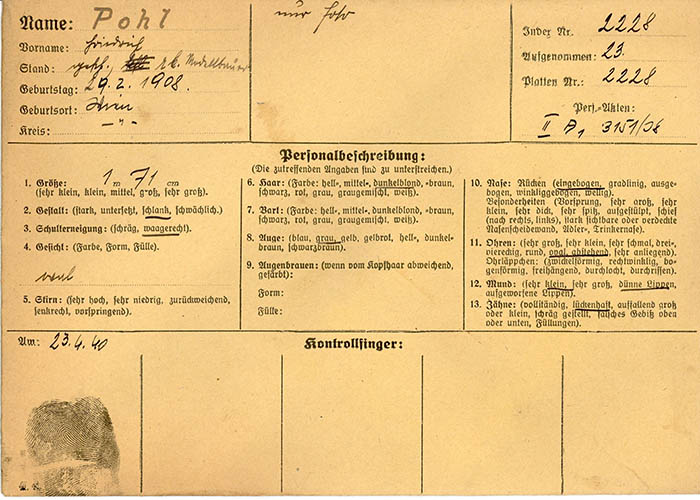 Name: Pohl
Vorname: Friedrich
Stand: gesch. rk. Modellbauer
Geburtstag: 29.2.1908.
Geburtsort: Wien
Kreis: – " –
nur Foto
Index Nr. 2228
Aufgenommen: 23.
Platten Nr.: 2228
Pers.-Akten:
II A, 3151/38
Personalbeschreibung:
(Die zutreffenden Angaben sind zu unterstreichen.)
1. Größe: 1 m 71 cm
(sehr klein, klein, mittel, groß, sehr groß).
2. Gestalt: (stark, untersetzt, schlank, schwächlich.)
3. Schulterneigung: (schräg, waagerecht).
4. Gesicht: (Farbe, Form, Fülle).
oval
5. Stirn: (sehr hoch, sehr niedrig, zurückweichend,
senkrecht, vorspringend).
6. Haar: (Farbe: hell-, mittel-, dunkelblond, -braun,
schwarz, rot, grau, graugemischt, weiß).
7. Bart: (Farbe: hell-, mittel-, dunkelblond, -braun,
schwarz, rot, grau, graugemischt, weiß).
8. Auge: (blau, grau, gelb, gelbrot, hell-, dunkel-
braun, schwarzbraun).
9. Augenbrauen: (wenn vom Kopfhaar abweichend,
gefärbt):
Form:
Fülle:
10. Nase: Rücken (eingebogen, gradlinig, ausge-
bogen, winkliggebogen, wellig).
Besonderheiten (Vorsprung, sehr groß, sehr
klein, sehr dick, sehr spitz, aufgestülpt, schief
(nach rechts, links), stark sichtbare oder verdeckte
Nasenscheidewand, Adler-, Trinkernase).
11. Ohren: (sehr groß, sehr klein, sehr schmal, drei-,
viereckig, rund, oval, abstehend, sehr anliegend).
Ohrläppchen: (zwickelförmig, rechtwinklig, bo-
genförmig, freihängend, durchlocht, durchrissen).
12. Mund: (sehr klein, sehr groß, dünne Lippen,
aufgeworfene Lippen).
13. Zähne: (vollständig, lückenhaft, auffallend groß
oder klein, schräg gestellt, falsches Gebiß oben
oder unten, Füllungen).
Am: 23.4.40
Kontrollfinger: